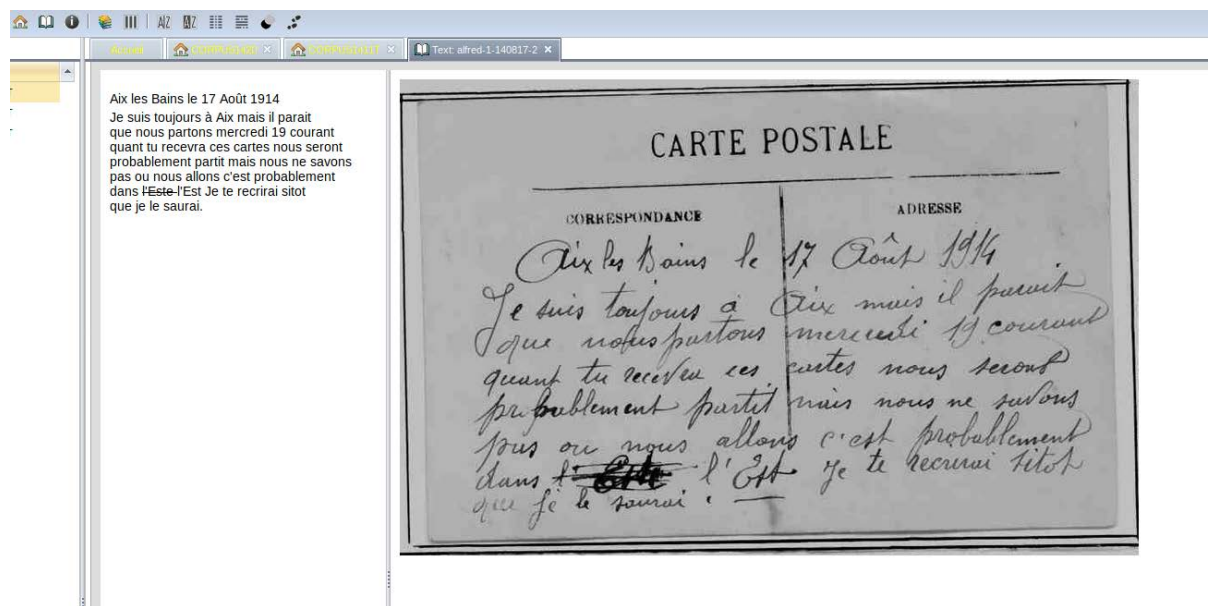 Accueil
Text: alfred-1-140817-2
Aix les Bains le 17 Août 1914
Je suis toujours à Aix mais il parait
que nous partons mercredi 19 courant
quant tu recevra ces cartes nous seront
probablement partit mais nous ne savons
pas ou nous allons c'est probablement
dans l'Este l'Est Je te recrirai sitot
que je le saurai.
CARTE POSTALE
CORRESPONDANCE
ADRESSE
Aix les Bains le 17 Août 1914
Je suis toujours à Aix mais il parait
que nous partons mercredi 19 courant
quant tu recevra ces cartes nous seront
probablement partit mais nous ne savons
pas ou nous allons c'est probablement
dans l'Este l'Est Je te recrirai sitot
que je le saurai.